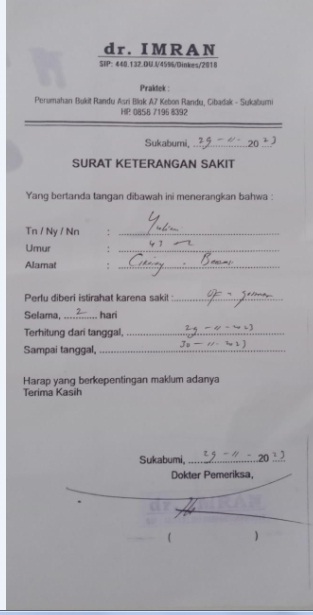 dr. IMRAN
SIP: 448.132.DU.I/4596/Dinkes/2018
Praktek :
Perumahan Bukit Randu Asri Blok A7 Kebon Randu, Cibadak - Sukabumi
HP. 0858 7196 6392
Sukabumi, 29 - 11 - 20 23
SURAT KETERANGAN SAKIT
Yang bertanda tangan dibawah ini menerangkan bahwa :
Tn / Ny / Nn :
Umur : 43
Alamat :
Perlu diberi istirahat karena sakit :
Selama, 2 hari
Terhitung dari tanggal, 29 - 11 - 2023
Sampai tanggal, 30 - 11 - 2023
Harap yang berkepentingan maklum adanya
Terima Kasih
Sukabumi, 29 - 11 - 20 23
Dokter Pemeriksa,
( )